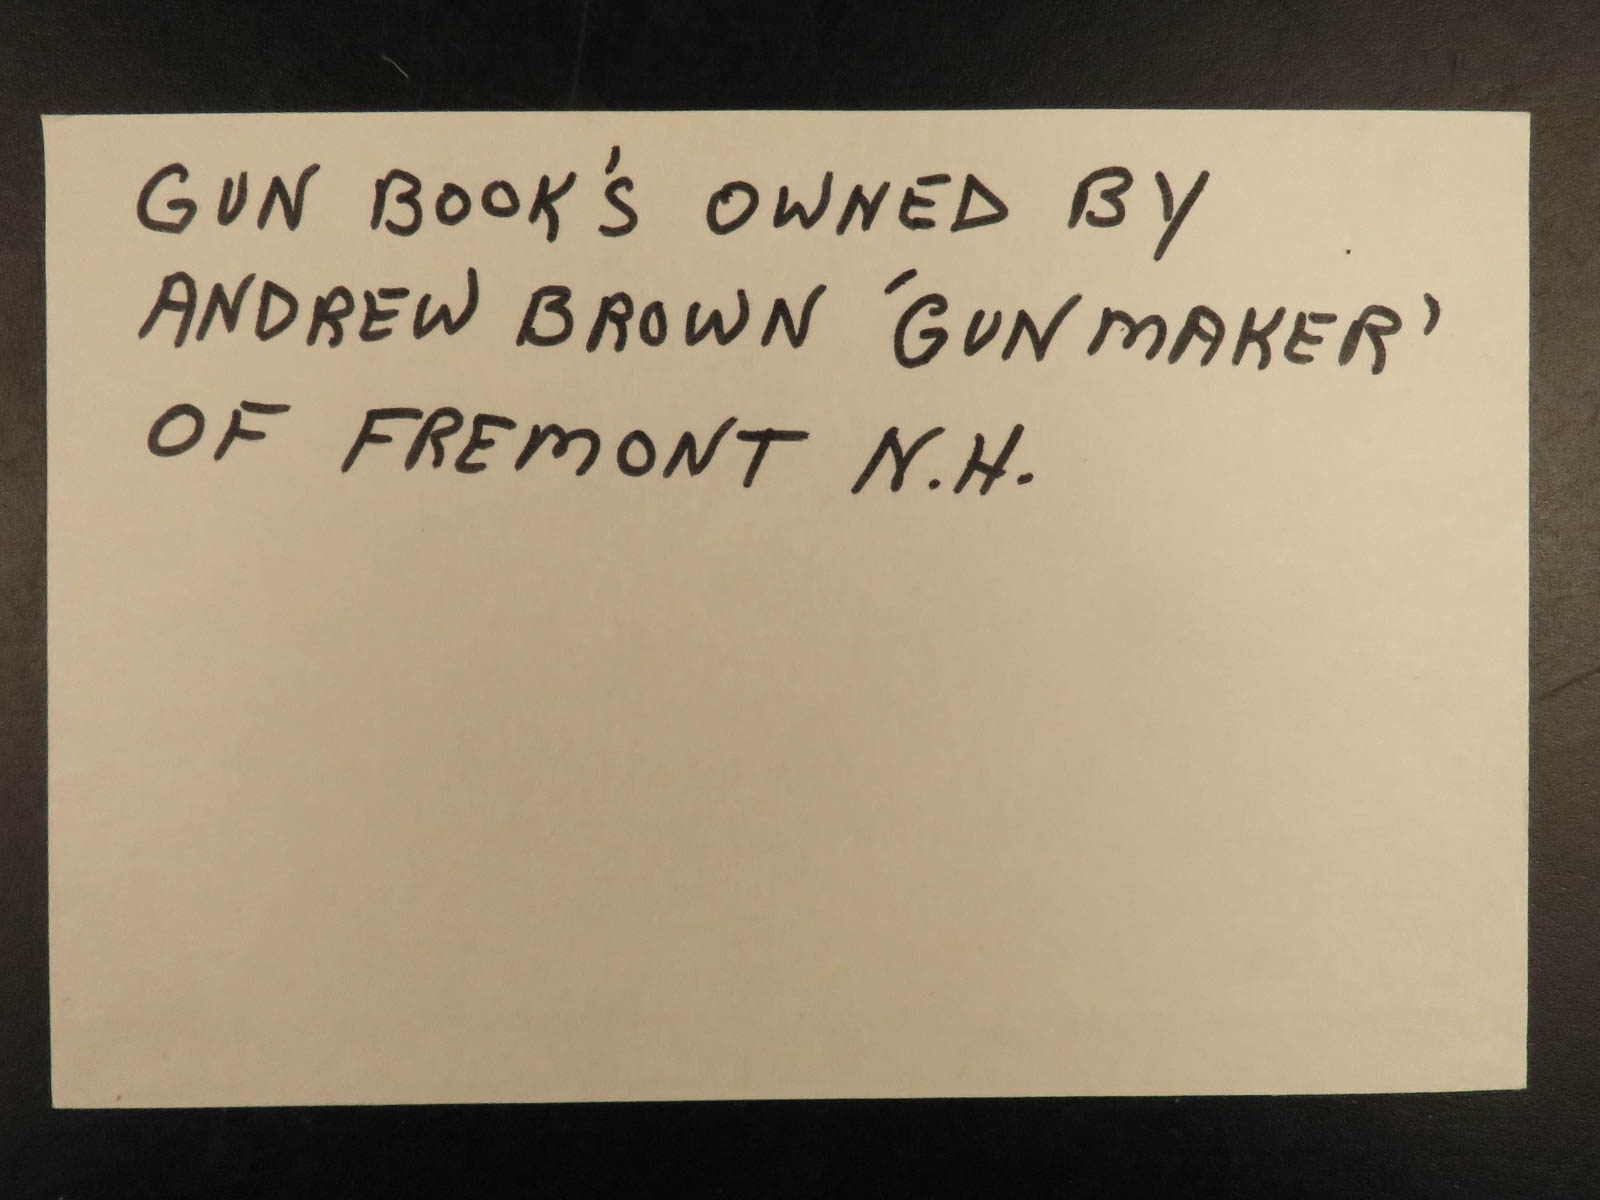 GUN BOOK'S OWNED BY
ANDREW BROWN 'GUNMAKER'
OF FREMONT N.H.